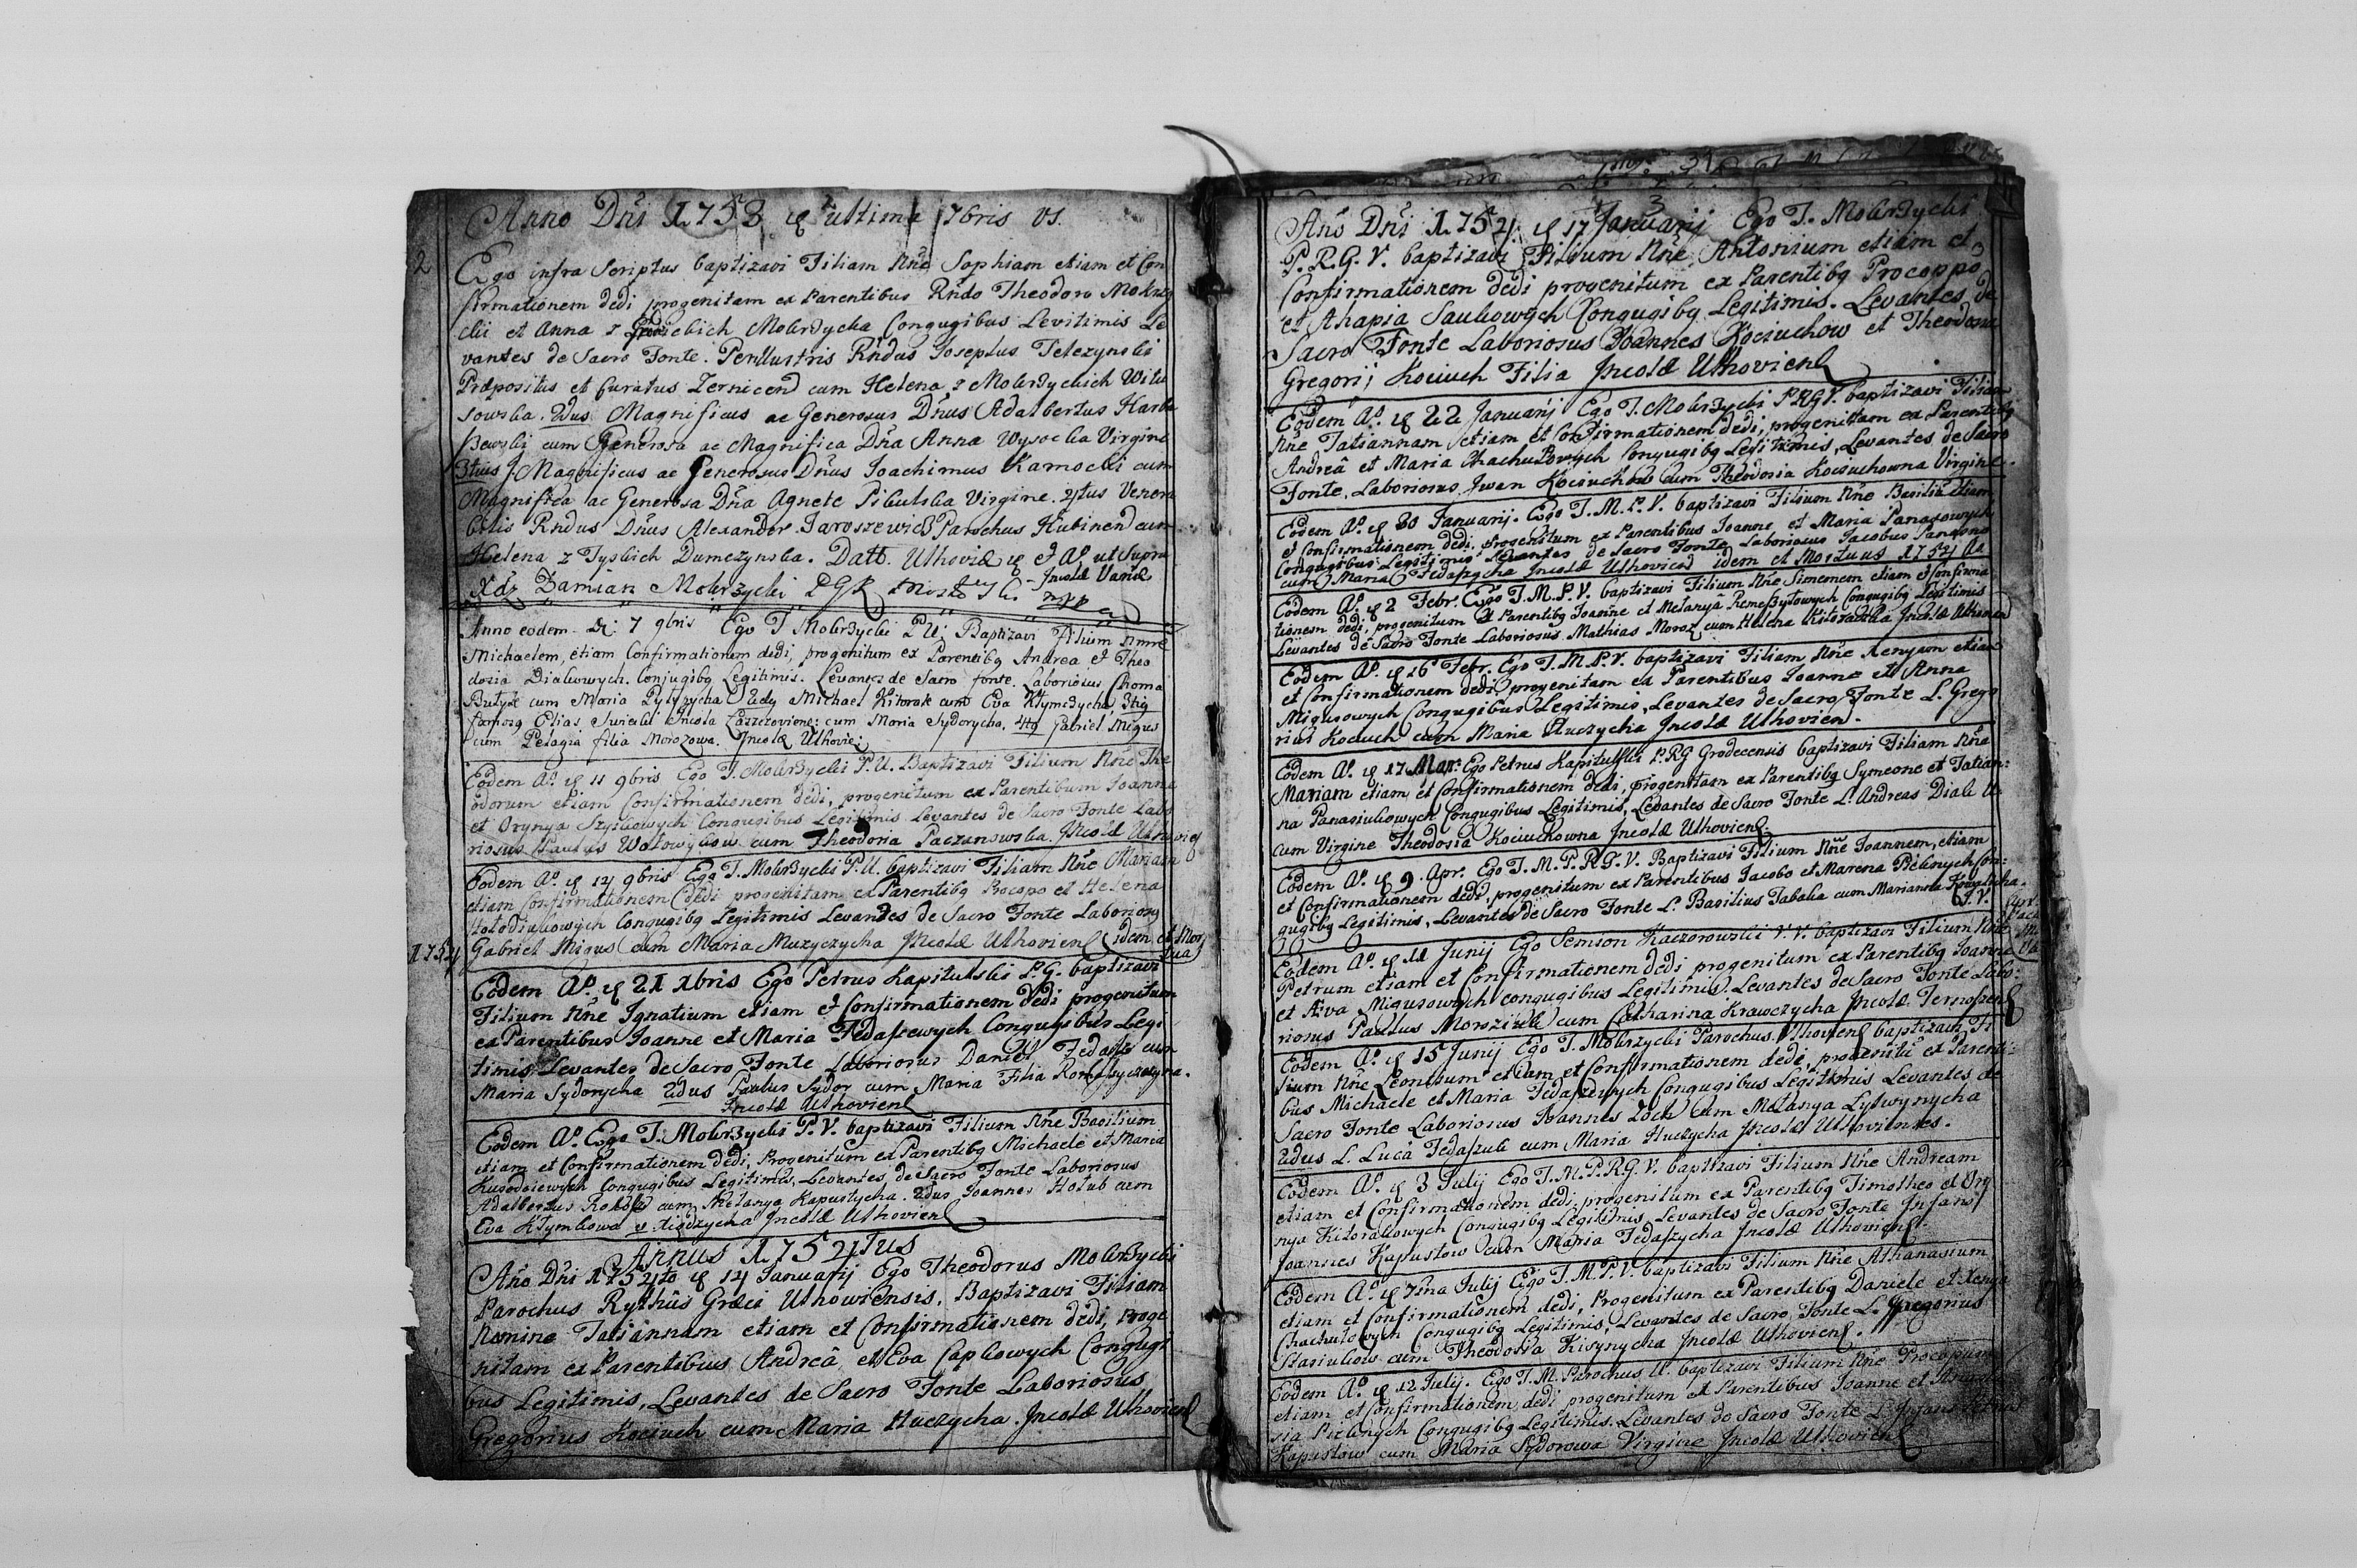 Anno Dñi 1753 ultima 7bris vs.
2
Ego infra Scriptus baptizavi Filiam Nñe Sophiam etiam et Con
firmationem dedi progenitam ex Parentibus Rñdo Theodoro Mokrzy
cki et Anna z Mokrzycka Conjugibus Levitimis Le
vantes de Sacro Fonte. Perillustris Rñdus Josephus Telezynski
Præpositus et Curatus cum Helena z Mokrzyckich Witu
sowska. 2dus Magnificus ac Generosus Dñus Adalbertus
cum Generosa ac Magnifica Dña Anna Wysocka Virgine
3tius Magnificus ac Generosus Dñus Joachimus Karnocki cum
Magnifica ac Generosa Dña Agnete Pikulska Virgine. 4tus Venera
bilis Rndus Dñus Alexander Jaroszewicz Parochus cum
Helena z Tyskich Dumczynska. Datt. Uthoviæ et Aº ut Supra
Xdz Damian Mokrzycki PGR
mpp
Anno eodem 7 9bris Ego T Mokrzycki PU: Baptizavi Filium Nmne
Michaelem, etiam Confirmationem dedi, progenitum ex Parentibq Andrea et Theo
dosia Diakowych. Conjugibq Legitimis. Levantes de Sacro fonte. Laboriosus Choma
cum Maria 2dq Michael Kitorak cum Eva 3tiq
Elias Incola cum Maria Sydorycha. 4tq Gabriel Migus
cum Pelagia filia Morozowa. Incolæ Uthovie:
Eodem Aº 11 9bris Ego T. Mokrzycki P.U. Baptizavi Filium Nñe The
odorum etiam Confirmationem dedi, progenitum ex Parentibum Joanne
et Orynya Conjugibus Legitimis Levantes de Sacro Fonte Labo
riosus Paulus cum Theodoria Paczanowska. Incolæ Uthovien
Eodem Aº 14 9bris Ego T. Mokrzycki P.U. baptizavi Filiam Nñe Mariam
etiam Confirmationem dedi progenitam ex Parentibq Procopo et Helena
Conjugibq Legitimis Levandes de Sacro Fonte Laboriosq
1754 Gabriel Migus cum Maria Muzyczycha Incolæ Uthovien idem et Mor
tua
Eodem Aº 21 xbris Ego Petrus Kapitulski P.G. baptizavi
Filium Nñe Ignatium etiam et Confirmationem dedi progenitum
ex Parentibus Joanne et Maria Fedaszewych Conjugibus Legi
timis Levantes de Sacro Fonte Laboriosus Daniel cum
Maria Sydorycha 2dus Paulus Sydor cum Maria Filia
Incolæ Uthovien
Eodem Aº Ego T. Mokrzycki P.V. baptizavi Filium Nñe Basilium
etiam et Confirmationem dedi, Progenitum ex Parentibq Michaele et Maria
Conjugibus Legitimis, Levantes de Sacro Fonte Laboriosus
Adalbertus cum Melanya Kapustycha. 2dus Joannes Hotub cum
Eva Kłymkowa Incolæ Uthovien
Annus 1754tus
Año Dñi 1754to 14 Januarij Ego Theodorus Mokrzycki
Parochus Rythûs Græci Uthowiensis, Baptizavi Filiam
Nomine Tatiannam etiam et Confirmationem dedi, proge
nitam ex Parentibus Andreâ et Eva Capkowych Conjugi
bus Legitimis, Levantes de Sacro Fonte Laboriosus
Gregorius Kociuch cum Maria Huczycha. Incolæ Uthovien
3
Año Dñi 1754 17 Januarij Ego T. Mokrzycki
P.R.G.V. baptizavi Filium Nñe Antonium etiam et
Confirmationem dedi progenitum ex Parentibq Procoppo
et Ahapia Saukowych Conjugibq Legitimis. Levantes de
Sacro Fonte Laboriosus Joannes Kociuchow et Theodosia
Gregorij Kociuch Filia Incolæ Uthovien
Eodem Aº 22 Januarij Ego T. Mokrzycki PRGV. baptizavi Filiam
Nñe Tatiannam etiam et Confirmationem dedi, progenitam ex Parentibq
Andreâ et Maria Chachułowych Conjugibq Legitimis, Levantes de Sacro
Fonte, Laboriosus Iwan Kociuchow cum Theodosia Kociuchowna Virgine.
Eodem Aº 30 Januarij. Ego T.M.P.V. baptizavi Filium Nñe Basiliũ etiam
et Confirmationem dedi, progenitum ex Parentibus Joanne et Maria Panasowych
Conjugibus Legitimis Levantes de Sacro Fonte Laboriosus Jacobus
cum Maria Fedaszycha Incolæ Uthovien idem et Mortuus 1754 Aº
Eodem Aº 2 Febr. Ego T.M.P.V. baptizavi Filium Nñe Simeonem etiam et Confirma
tionem dedi, progenitum ex Parentibq Joanne et Melanyâ Conjugibq Legitimis
Levantes de Sacro Fonte Laboriosus Mathias Moroz cum Helena Incolæ Uthovien
Eodem Aº 16 Febr. Ego T.M.P.V. baptizavi Filiam Nñe Xenyam etiam
et Confirmationem dedi progenitam ex Parentibus Joanne et Anna
Migusowych Conjugibus Legitimis, Levantes de Sacro Fonte L. Grego
rius Kociuch cum Maria Huczycha Incolæ Uthovien.
Eodem Aº 17 Mar: Ego Petrus Kapitulski P.RG Grodecensis baptizavi Filiam Nñe
Mariam etiam et Confirmationem dedi, progenitam ex Parentibq Symeone et Tatian:
na Panasiukowych Conjugibus Legitimis, Levantes de Sacro Fonte L. Andreas Diak
cum Virgine Theodosia Kociuchowna Incolæ Uthovien
Eodem Aº 9. Apr. Ego T.M.P.R.G.V. Baptizavi Filium Nñe Joannem, etiam
et Confirmationem dedi, progenitum ex Parentibus Jacobo et Marena Con:
jugibq Legitimis, Levantes de Sacro Fonte L. Basilius Tabaka cum Marianna
Eodem Aº 11 Junij Ego Semion Kaczorowski V.V. baptizavi Filium Nñe
Petrum etiam et Confirmationem dedi progenitum ex Parentibq Joanne
et Migusowych conjugibus Legitimis. Levantes de Sacro Fonte Labo:
riosus Paulus cum Catharina Krawczycha Incolæ
Eodem Aº 15 Junij Ego T. Mokrzycki Parochus Uthovien baptizavi Fi
lium Nñe Leontium etiam et Confirmationem dedi, progenitũ ex Parenti:
bus Michaele et Maria Fedaszewych Conjugibus Legitimis Levantes de
Sacro Fonte Laboriosus Joannes cum Melanya Lytwynycha
2dus L. Lucâ Fedaszuk cum Maria Huczycha Incolæ Uthovienses.
Eodem Aº 3 Julij Ego T.M.P.R.G.V. baptizavi Filium Nñe Andream
etiam et Confirmationem dedi, progenitum ex Parentibq Timotheo et Ory
nya Kitorakowych Conjugibq Legitimis, Levantes de Sacro Fonte Infans
Joannes Kapustow cum Maria Fedaszycha Incolæ Uthovien.
Eodem Aº 7ma Julij Ego T.M.P.V. baptizavi Filium Nñe Athanasium
etiam et Confirmationem dedi, Progenitum ex Parentibq Daniele et Xenya
Chachułowych Conjugibq Legitimis, Levantes de Sacro Fonte L. Gregorius
Stasiukow cum Theodosia Kisynycha Incolæ Uthovien.
Eodem Aº 12 Julij. Ego T.M. Parochus U. baptizavi Filium Nñe Procopium
etiam et Confirmationem dedi progenitum ex Parentibus Joanne et
Conjugibq Legitimis. Levantes de Sacro Fonte L. Infans
Kapustow cum Maria Sydorowa Virgine Incolæ Uthovien